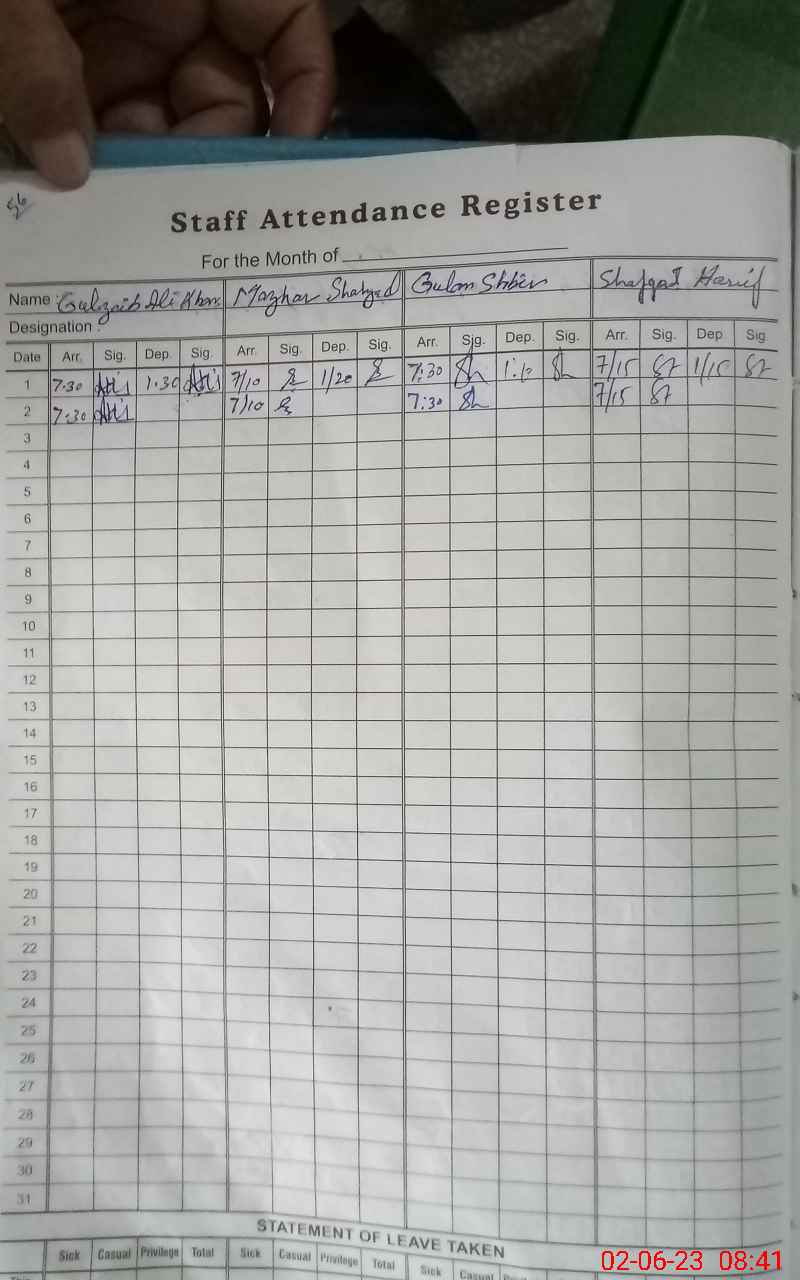 56
Staff Attendance Register
For the Month of
Name : Gulzaib Ali Khan Mazhar Shahzad Gulam Shbir Shafqat Hanif
Designation :
Date Arr. Sig. Dep. Sig. Arr. Sig. Dep. Sig. Arr. Sig. Dep. Sig. Arr. Sig. Dep Sig
1 7:30 1:30 7/10 1/20 7:30 1:10 7/15 1/15
2 7:30 7/10 7:30 7/15
3
4
5
6
7
8
9
10
11
12
13
14
15
16
17
18
19
20
21
22
23
24
25
26
27
28
29
30
31
STATEMENT OF LEAVE TAKEN
Sick Casual Privilege Total Sick Casual Privilege Total Sick Casual
02-06-23 08:41